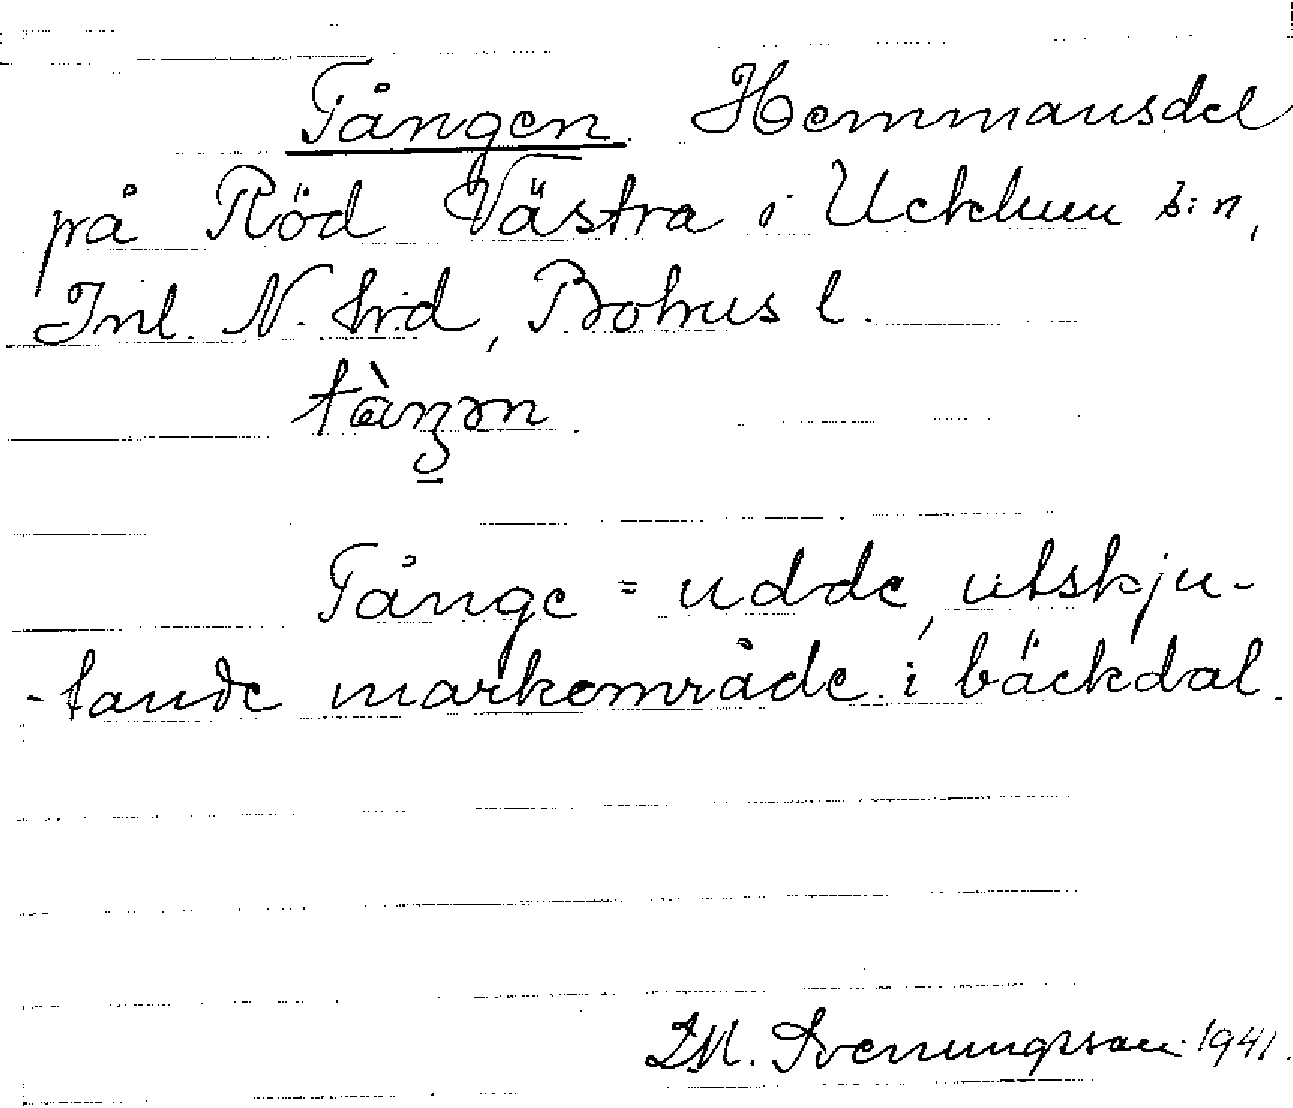 Tången. Hemmansdel
på Röd Västra i Ucklum s:n,
Inl. N. hrd, Bohus l.
tàŋən.
Tånge = udde, utskju-
-tande markområde i bäckdal.
Svenungsson 1941.